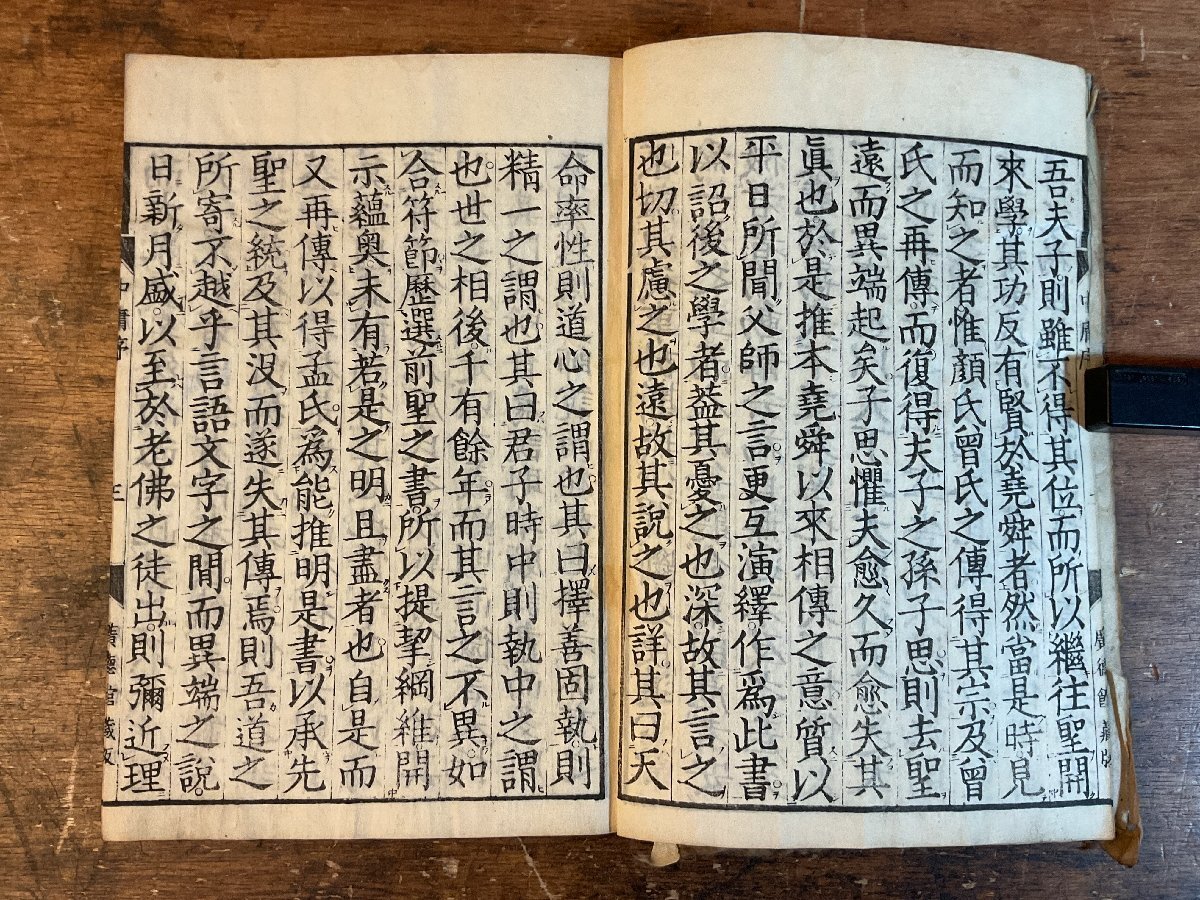 吾夫子則雖不得其位而所以繼往聖開
來學其功反有賢於堯舜者然當是時見
而知之者惟顏氏曾氏之傳得其宗及曾
氏之再傳而復得夫子之孫子思則去聖
遠而異端起矣子思懼夫愈久而愈失其
眞也於是推本堯舜以來相傳之意質以
平日所聞父師之言更互演繹作爲此書
以詔後之學者蓋其憂之也深故其言之
也切其慮之也遠故其說之也詳其曰天
命率性則道心之謂也其曰擇善固執則
精一之謂也其曰君子時中則執中之謂
也世之相後千有餘年而其言之不異如
合符節歷選前聖之書所以提挈綱維開
示蘊奧未有若是之明且盡者也自是而
又再傳以得孟氏爲能推明是書以承先
聖之統及其沒而遂失其傳焉則吾道之
所寄不越乎言語文字之閒而異端之說
日新月盛以至於老佛之徒出則彌近理
中庸序
三
廣德館藏版